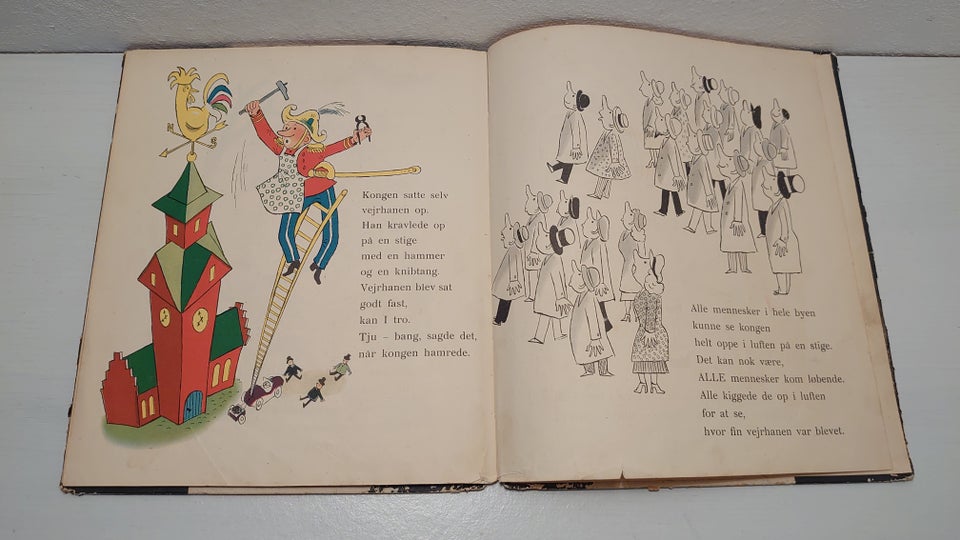 Kongen satte selv
vejrhanen op.
Han kravlede op
på en stige
med en hammer
og en knibtang.
Vejrhanen blev sat
godt fast,
kan I tro.
Tju – bang, sagde det,
når kongen hamrede.
Alle mennesker i hele byen
kunne se kongen
helt oppe i luften på en stige.
Det kan nok være,
ALLE mennesker kom løbende.
Alle kiggede de op i luften
for at se,
hvor fin vejrhanen var blevet.